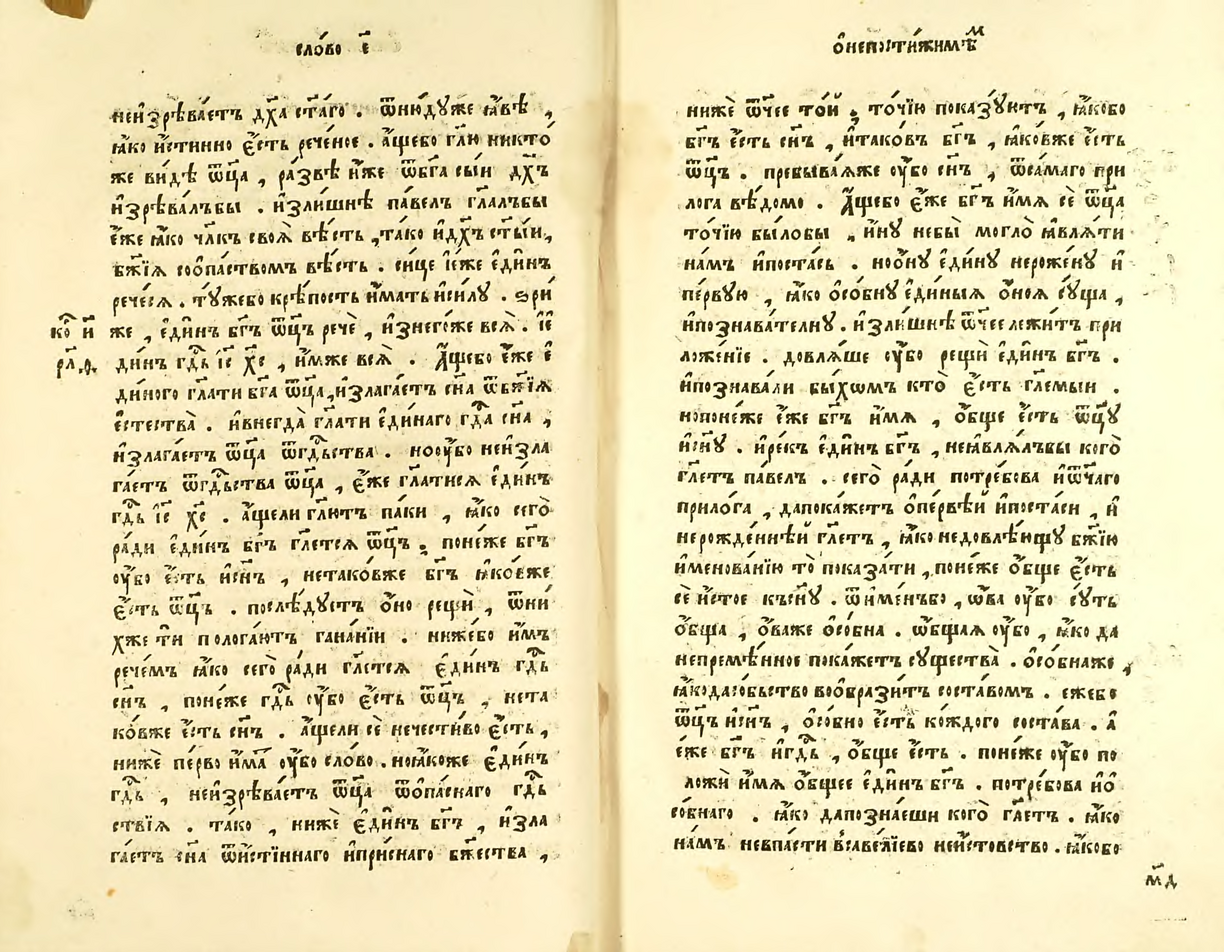 сло́во е҃
неи҆зрѣва́етъ дх҃а ст҃а́го . ѿню́дуже ꙗ҆́вѣ ,
ꙗ҆́ко и҆́стинно є҆́сть рече́ное . а҆́щебо гл҃ю никто́
же ви́дѣ ѿц҃а , ра́звѣ и҆́же ѿбг҃а сы́и дх҃ъ
и҆зрѣва́лъбы . и҆зли́шнѣ па́велъ гл҃алъбы
є҆́же ꙗ҆́ко чл҃къ своѧ̀ вѣ́сть , та́ко и҆дх҃ъ ст҃ы́и ,
бж҃їѧ соо́паствомъ вѣ́сть . си́це і҆е́же є҆ди́нъ
рече́сѧ . ту́жебо крѣ́пость и҆́мать и҆си́лу . ѕри
же , є҆ди́нъ бг҃ъ ѿц҃ъ речѐ , и҆знего́же всѧ̀ . і҆е҆
ди́нъ гд҃ь і҆с҃ хс҃ , и҆́мже всѧ̀ . А҆́щебо є҆́же є҆
ди́ного гл҃ати бг҃а ѿц҃а , и҆злага́етъ сн҃а ѿбж҃їѧ
є҆стества̀ . и҆внегда̀ гл҃ати є҆ди́наго гд҃а сн҃а ,
и҆злага́етъ ѿц҃а ѿгд҃ьства . ноо҆у҆́бо неи҆зла
га́етъ ѿгд҃ьства ѿц҃а , є҆́же гл҃атисѧ є҆ди́нъ
гд҃ь і҆с҃ хс҃ . а҆́щели гл҃ютъ па́ки , ꙗ҆́ко сего̀
ра́ди є҆ди́нъ бг҃ъ гл҃етсѧ ѿц҃ъ , поне́же бг҃ъ
оу҆́бо є҆́сть и҆сн҃ъ , нетако́вже бг҃ъ ꙗ҆ко́вже
є҆́сть ѿц҃ъ . послѣ́дуетъ ѻ҆но̀ рещѝ , ѿни́
хже ти пологаю́тъ гана́нїи . ниже́бо и҆́мъ
рече́мъ ꙗ҆́ко сего̀ ра́ди гл҃етсѧ є҆ди́нъ гд҃ь
сн҃ъ , поне́же гд҃ь оу҆́бо є҆́сть ѿц҃ъ , нета
ко́вже є҆́сть сн҃ъ . а҆́щели сѐ нечести́во є҆́сть ,
нижѐ пе́рво и҆́мать оу҆́бо сло́во . ноꙗ҆́коже є҆ди́нъ
гд҃ь , неи҆зрѣва́етъ ѿц҃а ѿѻ҆па́снаго гд҃ь
ствїѧ . та́ко , нижѐ є҆ди́нъ бг҃ъ , и҆зла
га́етъ сн҃а ѿи҆́стіннаго и҆при́снаго бж҃ества ,
ко҃ и҃
рл҃ѳ.
ѻ҆непости́жимѣмъ
нижѐ ѿ́чее то́й , то́чїю пока́зуютъ , ꙗ҆́кобо
бг҃ъ є҆́сть сн҃ъ , и҆тако́въ бг҃ъ , ꙗ҆ко́вже є҆́сть
ѿц҃ъ . пребыва́ѧже оу҆́бо сн҃ъ , ѿсама́го при
лога вѣ́домо . А҆́щебо є҆́же бг҃ъ и҆́мѧ сѐ ѿц҃а
то́чїю бы́лобы , и҆́ну небы̀ могло̀ ꙗ҆влѧ́ти
на́мъ и҆поста́сь . ноо҆́ну є҆ди́ну нероже́ну и҆
пе́рвую , ꙗ҆́ко ѻ҆со́бну є҆ди́ныѧ ѻ҆́ноѧ су́ща ,
и҆познава́телну . и҆зли́шнѣ ѿ́чее лежи́тъ при
ложе́нїе . довлѧ́ше оу҆́бо рещѝ є҆ди́нъ бг҃ъ .
и҆познава́ли бы́хомъ кто̀ є҆́сть гл҃емыи .
нопоне́же є҆́же бг҃ъ и҆́мѧ , ѻ҆́бще є҆́сть ѿц҃у
и҆сн҃у . и҆ре́къ є҆ди́нъ бг҃ъ , неꙗ҆влѧ́лъбы кого̀
гл҃етъ па́велъ . сего̀ ра́ди потре́бова и҆ѿ́чаго
прило́га , дапока́жетъ ѻ҆пе́рвѣй и҆поста́си , и҆
нерожде́ннѣй гл҃етъ , ꙗ҆́ко недовлѣ́ющу бж҃їю
и҆менова́нїю то̀ показа́ти , поне́же ѻ҆́бще є҆́сть
сѐ и҆́стое къ сн҃у . ѿи҆ме́нъбо , ѻ҆́ва оу҆́бо су́ть
ѻ҆́бща , ѻ҆́важе ѻ҆со́бна . ѻ҆́бщаѧ оу҆́бо , ꙗ҆́ко да
непремѣ́нное пока́жетъ существа̀ . ѻ҆со́бнаже ,
ꙗ҆́кодасо́бьство воо҆брази́тъ соста́вомъ . є҆же́бо
ѿц҃ъ и҆сн҃ъ , ѻ҆со́бно є҆́сть ко́ждого соста́ва . а҆
є҆́же бг҃ъ и҆гд҃ь , ѻ҆́бще є҆́сть . поне́же оу҆́бо по
ложѝ и҆́мѧ ѻ҆́бщее є҆ди́нъ бг҃ъ . потре́бова и҆ѻ҆
со́бнаго . ꙗ҆́ко дапозна́еши кого̀ гл҃етъ . ꙗ҆́ко
на́мъ невпа́сти всаве́лїево неи҆́стовство . ꙗ҆́кобо
м҃д